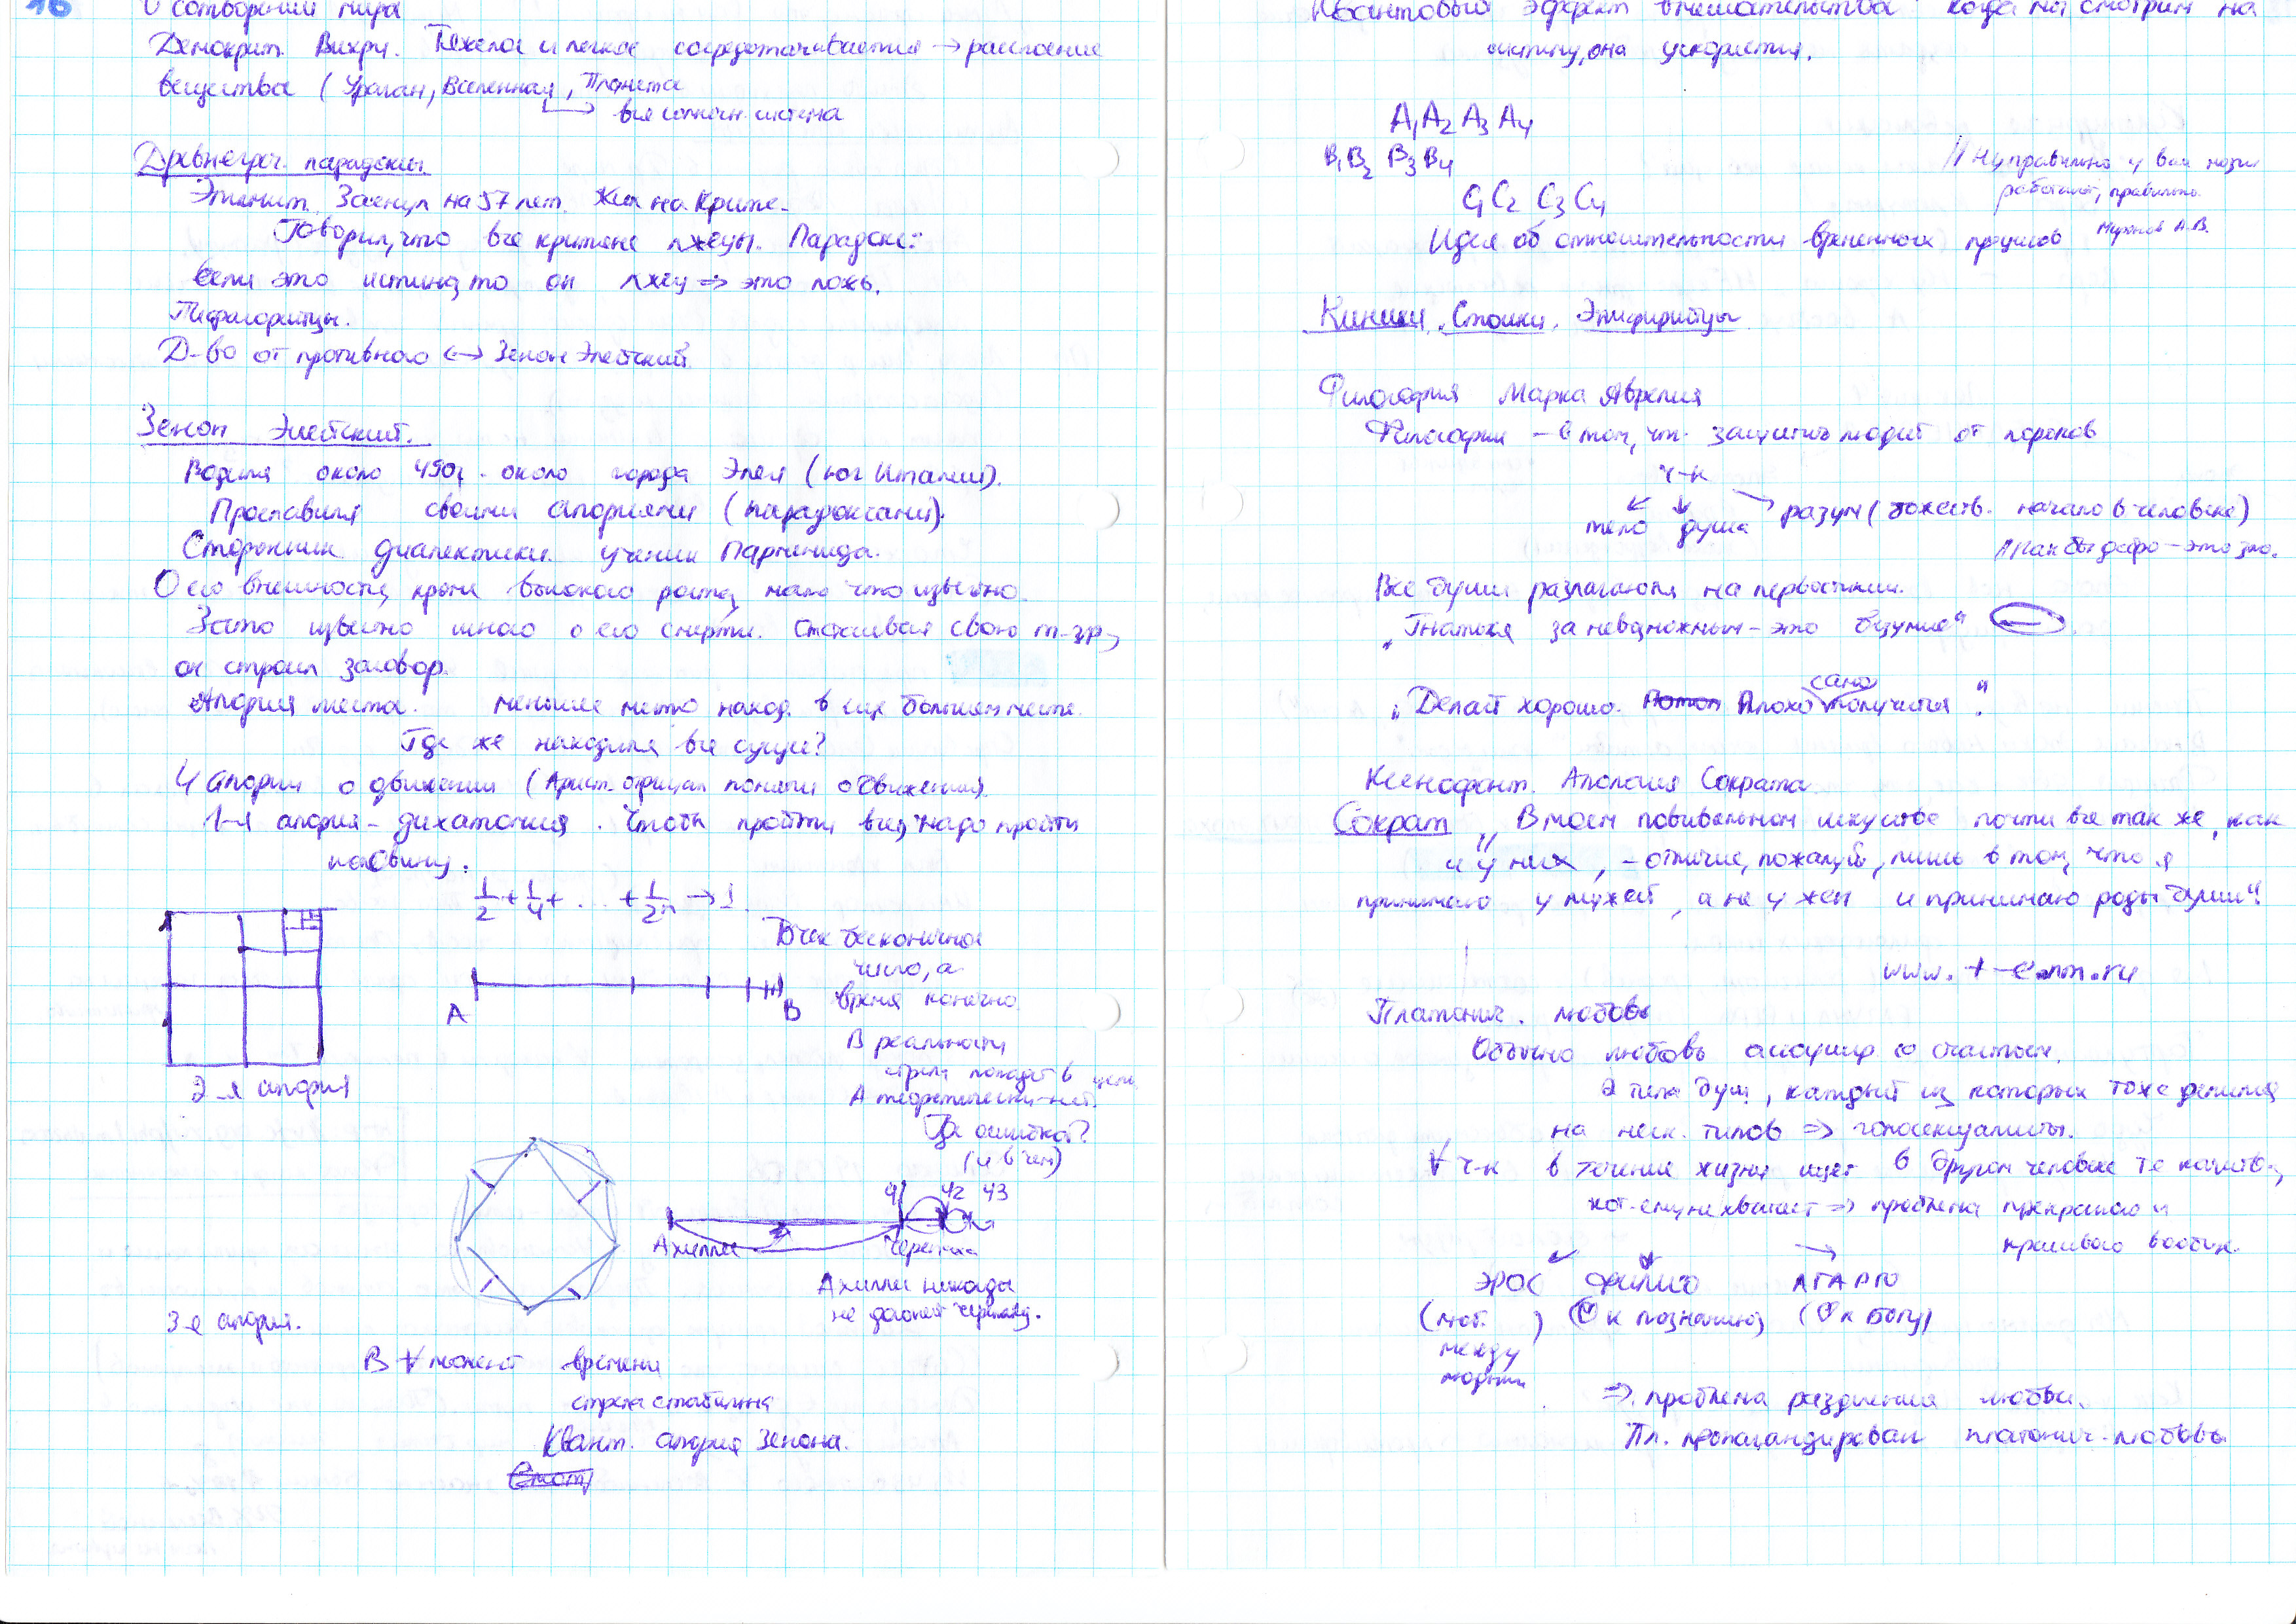 16
О сотворении мира
Демокрит. Вихри. Тяжелое и легкое сосредотачивается → расслоение
вещества (Ураган, Вселенная, Планета
вся солнечн. система
Древнегреч. парадоксы
Эпименид. Заснул на 57 лет. Жил на Крите.
Говорил, что все критяне лжецы. Парадокс:
если это истина, то он лжец ⇒ это ложь.
Пифагорейцы.
Д-во от противного ↔ Зенон Элейский
Зенон Элейский.
Родился около 490г. около города Элея (юг Италии).
Прославился своими апориями (парадоксами).
Сторонник диалектики. ученик Парменида.
О его внешности, кроме высокого роста, мало что известно.
Зато известно много о его смерти. Отстаивая свою т-зр,
он строил заговор.
Апория места. меньшее место наход. в еще большем месте.
Где же находится все сущее?
4 апории о движении (Арист. отрицал понятия о движении).
1-я апория - дихатомия. Чтобы пройти весь, надо пройти
половину.
1/2 + 1/4 + ... + 1/2ⁿ → 1
Точек бесконечное
число, а
время конечно.
A B
В реальности
стрела попадает в цель
А теоретически-нет.
Где ошибка?
(и в чем)
2-я апория
Ч1 Ч2 Ч3
Ахиллес Черепаха
Ахиллес никогда
не догонит черепаху.
3-я апория.
В ∀ момент времени
стрела стабильна
Квант. апория Зенона.
Квантовый эффект вмешательства когда мы смотрим на
систему, она ускоряется.
A₁ A₂ A₃ A₄
B₁ B₂ B₃ B₄
C₁ C₂ C₃ C₄
// Ну правильно у вас мозги
работают, правильно.
А.В.
Идея об относительности временных процессов
Киники, Стоики, Эпифирейцы
Философия Марка Аврелия
Философия - в том, чт. защитить людей от пороков
ч-к
тело душа разум (божеств. начало в человеке)
это зло.
Все души разлагаются на первостихии.
"Гнаться за невозможным - это безумие"
"Делай хорошо. Плохо само получится".
Ксенофонт. Апология Сократа
Сократ "В моем повивальном искусстве почти все так же, как
и у них, - отличие, пожалуй, лишь в том, что я
принимаю у мужей, а не у жен и принимаю роды души".
www.t-e.nm.ru
Платонич. любовь
Обычно любовь ассоциир со счастьем.
2 типа душ, каждый из которых тоже делится
на неск. типов ⇒ гомосексуалисты.
∀ ч-к в течение жизни ищет в другом человеке те качества,
кот. ему не хватает ⇒ проблема прекрасного и
красивого вообще.
ЭРОС ФИЛИО АГАПЮ
(люб. между людьми) (♡ к познанию) (♡ к Богу)
⇒ проблема разделения любви.
Пл. пропагандировал платонич. любовь